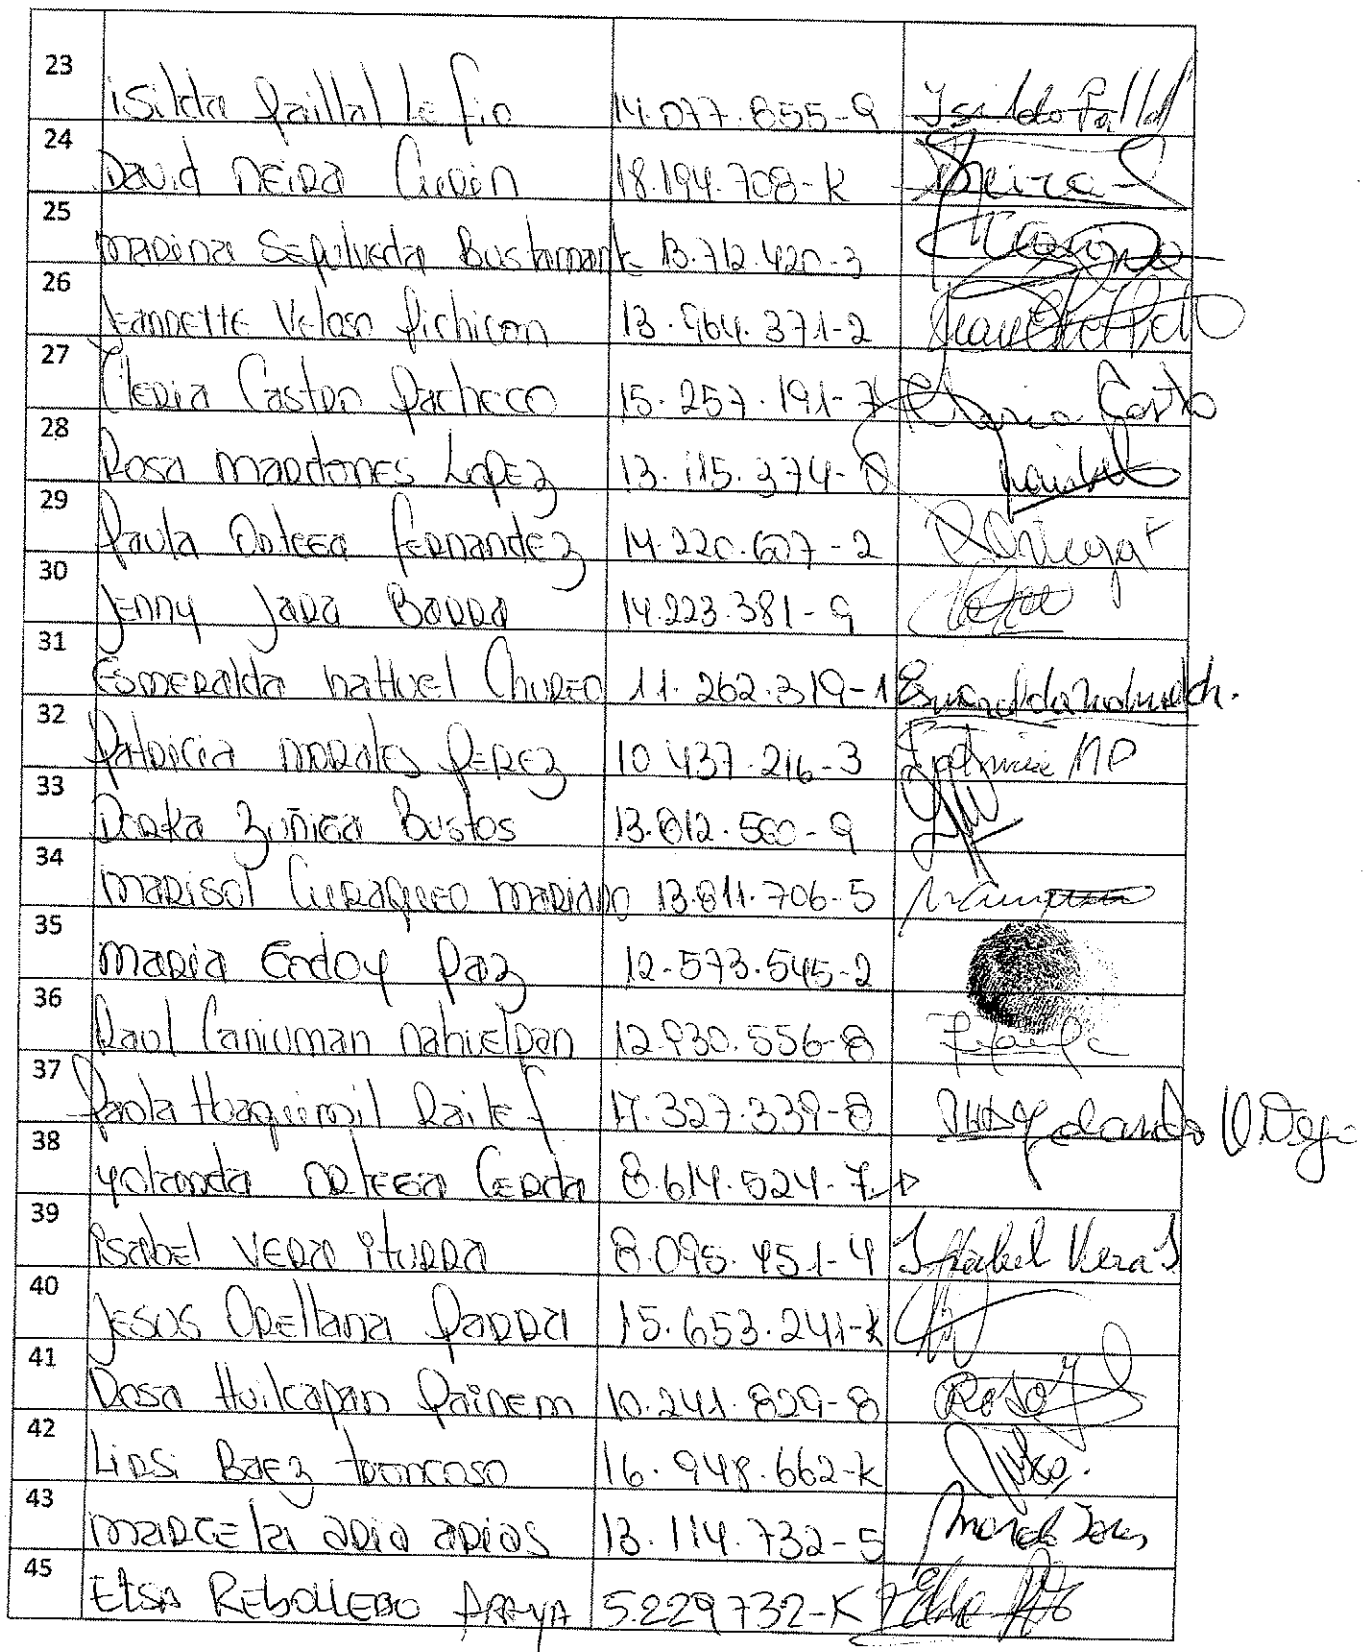 23 isilda Paillal Le fio 14.077.855-9 Isilda Paillal
24 David Neira Curin 18.194.708-K Neira
25 Marina Sepulveda Bustamante 13.712.420-3 Marina
26 Jeannette Veloso Pichicon 13.964.371-2
27 Cleria Castro Pacheco 15.257.191-7 Castro
28 Rosa Mardones Lopez 13.115.374-8
29 Paula Ortega Fernandez 14.220.607-2 P Ortega F
30 Jenny Jara Barra 14.223.381-9
31 Esmeralda nahuel Chureo 11.262.319-1 Esmeralda nahuel ch.
32 Patricia Morales Perez 10.437.216-3 Patricia MP
33 Dorka Zuñiga Bustos 13.812.560-9
34 Marisol Curaqueo Mariano 13.811.706-5
35 Maria Godoy Paz 12.573.545-2
36 Raul Caniuman nahuelpan 12.930.556-8
37 Paola Huaquimil Railef 17.327.339-8
38 Yolanda Ortega Cerda 8.614.524-7 Yolanda O
39 isabel Vera iturra 8.095.451-4 Isabel Vera I
40 Jesus Orellana Parra 15.653.241-k
41 Rosa Huilcapan Painem 10.241.829-8 Rosa
42 Baez troncoso 16.948.662-k
43 Marcela aria arias 13.114.732-5
45 Elsa Rebolledo Araya 5.229.732-K